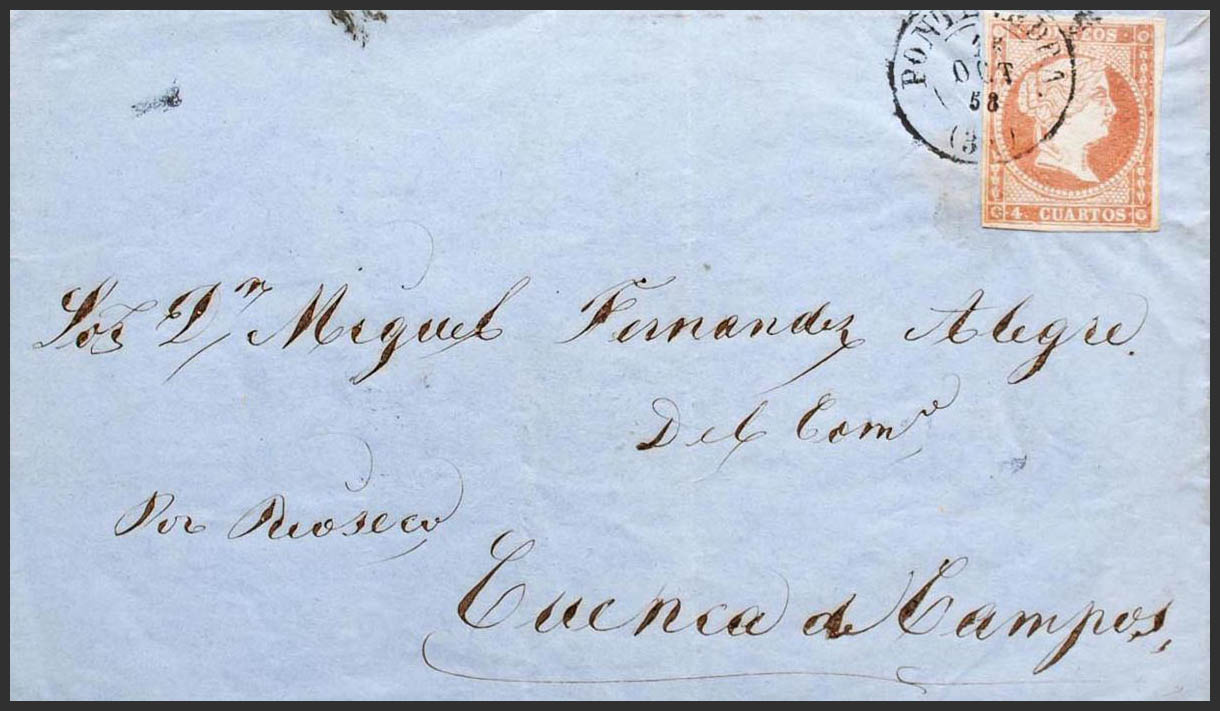 PONTEVEDRA
OCT
58
CORREOS
4. CUARTOS
Sor Dn Miguel Fernandez Alegre.
Del Como
Por Rioseco
Cuenca de Campos,